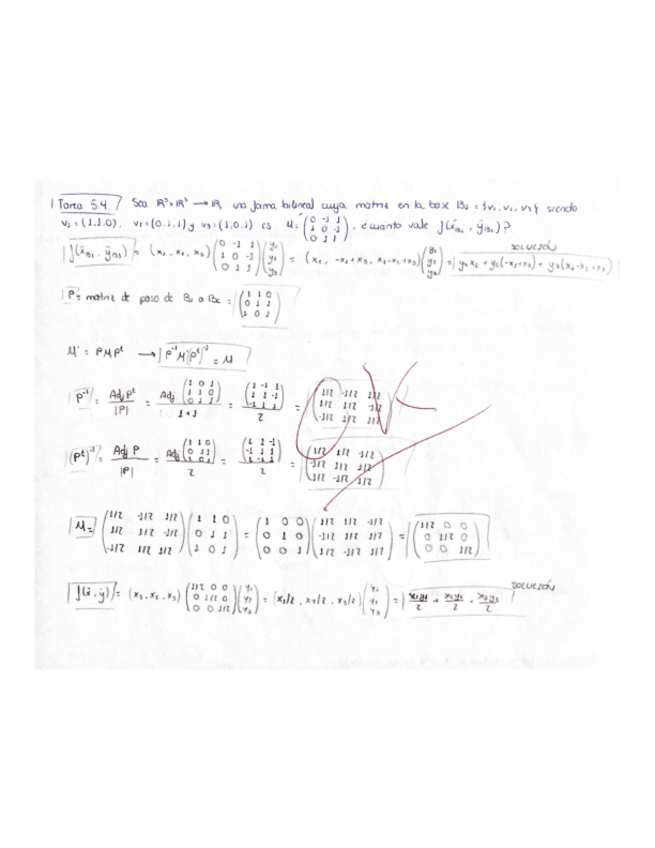 Tarea 5.4. Sea ℝ³×ℝ³ → ℝ una forma bilineal cuya matriz en la base B₁ = {v₁, v₂, v₃} siendo
v₁ = (1,1,0), v₂ = (0,1,1) y v₃ = (1,0,1) es M' = (0 -1 1; 1 0 -1; 0 1 1), ¿cuanto vale f(x̄_B₁, ȳ_B₁)?
SOLUCIÓN
f(x̄_B₁, ȳ_B₁) = (x₁, x₂, x₃) (0 -1 1; 1 0 -1; 0 1 1) (y₁; y₂; y₃) = (x₂, -x₁+x₃, x₁-x₂+x₃) (y₁; y₂; y₃) = y₁x₂ + y₂(-x₁+x₃) + y₃(x₁-x₂+x₃)
P = matriz de paso de B₁ a Bc = (1 1 0; 0 1 1; 1 0 1)
M' = PMPᵗ → P⁻¹M'(Pᵗ)⁻¹ = M
P⁻¹ = Adj Pᵗ / |P| = Adj (1 0 1; 1 1 0; 0 1 1) / 1+1 = (1 -1 1; 1 1 -1; -1 1 1) / 2 = (1/2 -1/2 1/2; 1/2 1/2 -1/2; -1/2 1/2 1/2)
(Pᵗ)⁻¹ = Adj P / |P| = Adj (1 1 0; 0 1 1; 1 0 1) / 2 = (1 1 -1; -1 1 1; 1 -1 1) / 2 = (1/2 1/2 -1/2; -1/2 1/2 1/2; 1/2 -1/2 1/2)
M = (1/2 -1/2 1/2; 1/2 1/2 -1/2; -1/2 1/2 1/2) (1 1 0; 0 1 1; 1 0 1) = (1 0 0; 0 1 0; 0 0 1) (1/2 1/2 -1/2; -1/2 1/2 1/2; 1/2 -1/2 1/2) = (1/2 0 0; 0 1/2 0; 0 0 1/2)
SOLUCIÓN
f(x̄, ȳ) = (x₁, x₂, x₃) (1/2 0 0; 0 1/2 0; 0 0 1/2) (y₁; y₂; y₃) = (x₁/2, x₂/2, x₃/2) (y₁; y₂; y₃) = x₁y₁/2 + x₂y₂/2 + x₃y₃/2